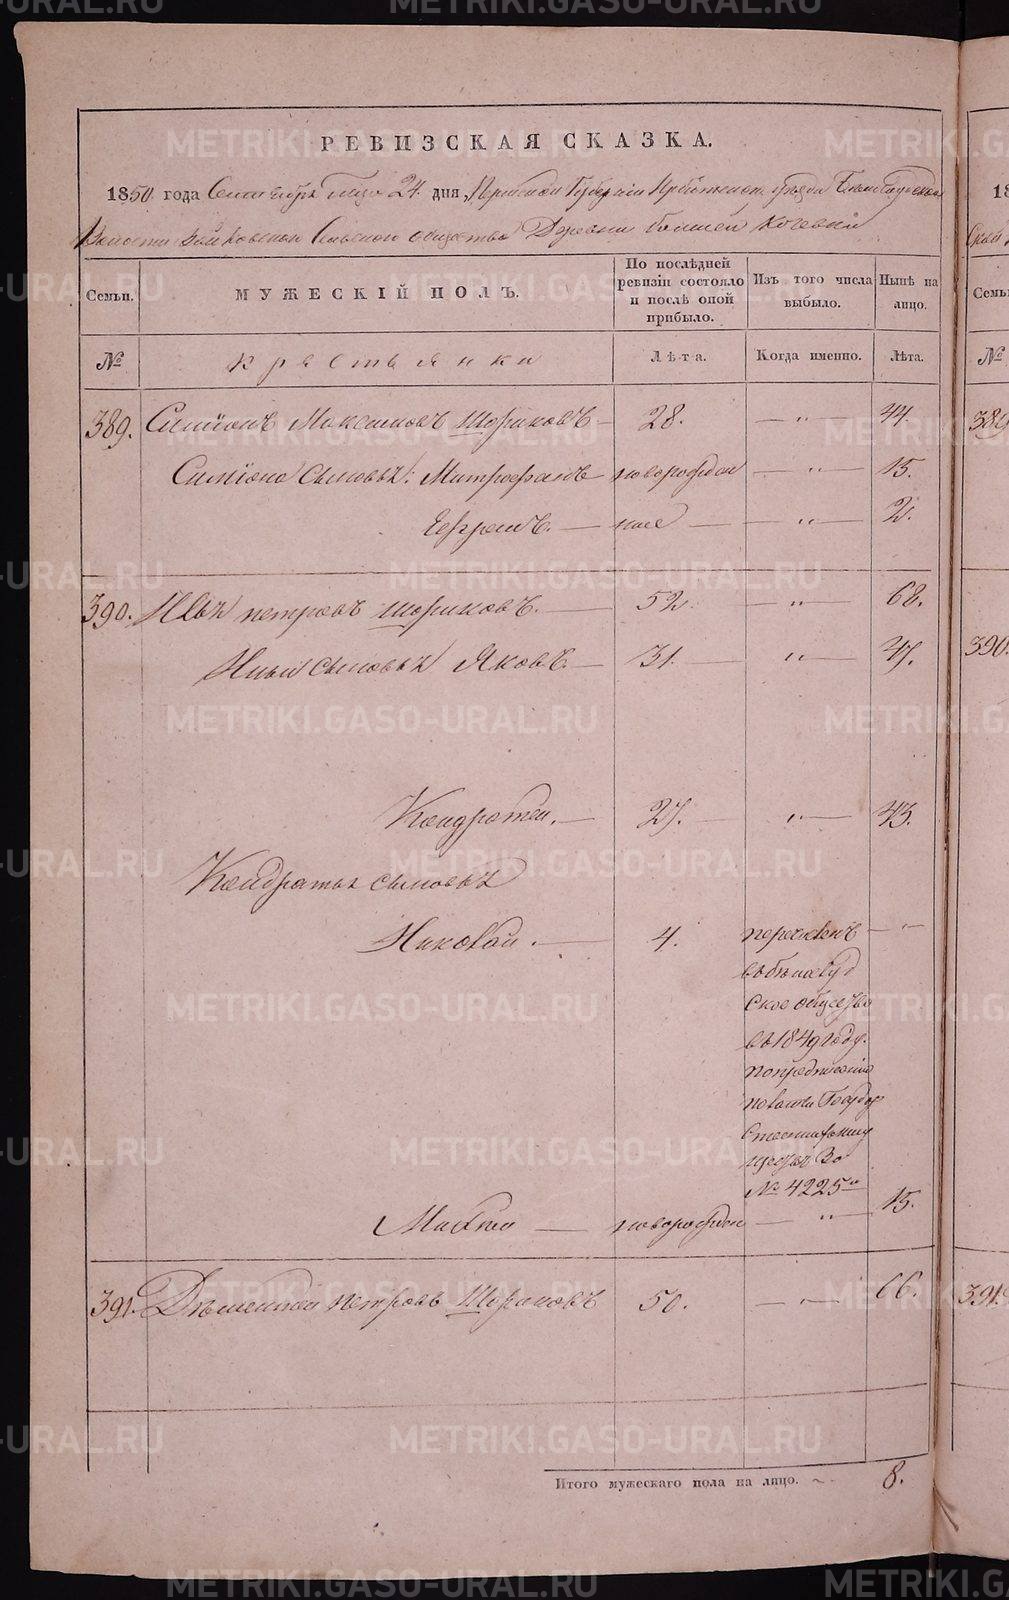 РЕВИЗСКАЯ СКАЗКА.
1850 года Сентября 24 дня, Пермской Губернии Ирбитскаго уѣзда
Волости Сельскаго общества Деревни Кочевки
Семьи. МУЖЕСКІЙ ПОЛЪ. По послѣдней ревизіи состояло и послѣ оной прибыло. Изъ того числа выбыло. Нынѣ на лицо.
№ крестьянки Лѣта. Когда именно. Лѣта.
389. Симіонъ Максимовъ Шориковъ 28. — „ — 44.
Симіона сыновья: Митрофанъ новорожден — „ — 15.
Ефремъ. — после — „ — 2.
390. Петровъ Шориковъ. — 52. — „ — 68.
сыновья Яковъ — 31. — „ — 47.
Кондратей. — 27. — „ — 43.
Кондратья сыновья
Николай. — 4. перечисленъ — „ —
ское общество
въ 1849 году.
по предписанію
палаты Государ
ственныхъ иму
ществъ За
№ 4225ю
новорожден — „ — 15.
391. Петровъ Шориковъ 50. — „ — 66.
Итого мужескаго пола на лицо. 8.
METRIKI.GASO-URAL.RU